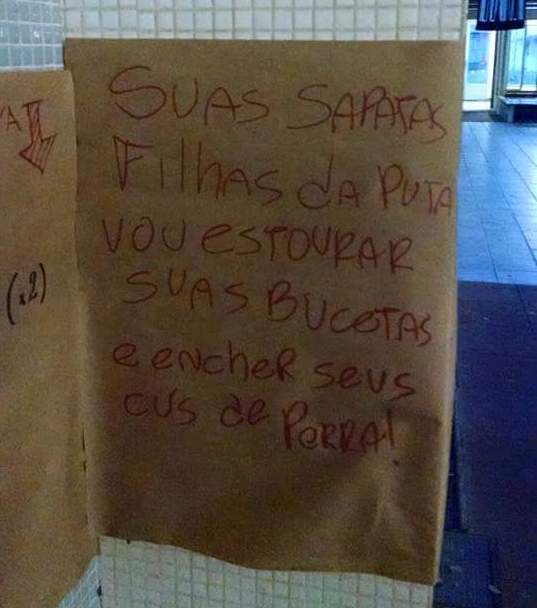 SUAS SAPATAS
FILHAS DA PUTA
VOU ESTOURAR
SUAS BUCETAS
e eNCHeR SeUS
CUS de PORRA!
(x2)